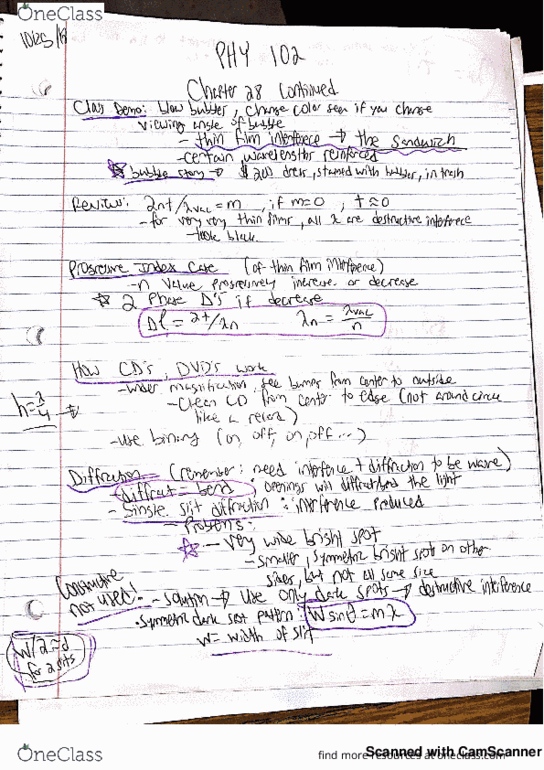 OneClass
10/25/18
PHY 102
Chapter 28 Continued
Class Demo: blow bubbles, change color seen if you change
viewing angle of bubble
- thin film interference → the sandwich
- certain wavelengths reinforced
bubble story → $200 dress, stained with bubbles, in trash
Review: 2nt/λvac = m, if m=0, t≈0
- for very very thin films, all λ are destructive interference
- look black
Progressive Index Case (of thin film interference)
- n value progressively increase or decrease
2 Phase D's if decrease
Dl = 2t/λn λn = λvac/n
How CD's, DVD's work
- under magnification, see bumps from center to outside
- Clean CD from center to edge (not around circle
like a record)
h=λ/4 →
- use binary (on, off, on, off...)
Diffraction (remember: need interference + diffraction to be wave)
Diffract = bend ; openings will diffract/bend the light
- Single slit diffraction : interference produced
- Problems:
- very wide bright spot
- smaller, symmetric bright spots on other
sides, but not all same size
Constructive
not used!
- solution → Use only dark spots → destructive interference
• symmetric dark spot pattern: W sinθ = mλ
W = width of slit
W/2 = d
for 2 slits
OneClass
find more resources at oneclass.com
Scanned with CamScanner